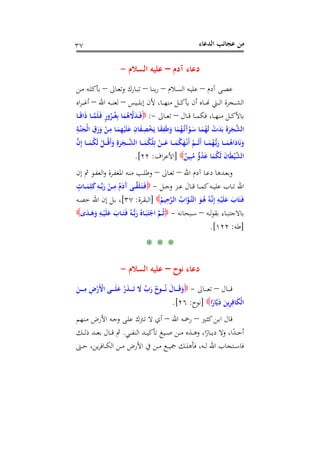 من عجائب الدعاء ٣٧
دعاء آدم – عليه السلام –
عصى آدم – عليه السلام – ربنا – تبارك وتعالى – بأكله من
الشجرة التي نهاه أن يأكل منها، لأن إبليس – لعنه الله – أغراه
بالأكل منها، فكما قال – تعالى -: ﴿فَدَلَّاهُمَا بِغُرُورٍ فَلَمَّا ذَاقَا
الشَّجَرَةَ بَدَتْ لَهُمَا سَوْآتُهُمَا وَطَفِقَا يَخْصِفَانِ عَلَيْهِمَا مِنْ وَرَقِ الْجَنَّةِ
وَنَادَاهُمَا رَبُّهُمَا أَلَمْ أَنْهَكُمَا عَنْ تِلْكُمَا الشَّجَرَةِ وَأَقُلْ لَكُمَا إِنَّ
الشَّيْطَانَ لَكُمَا عَدُوٌّ مُبِينٌ﴾ [الأعراف: ٢٢].
وبعدها دعا آدم الله – تعالى – وطلب منه المغفرة والعفو ثم إن
الله تاب عليه كما قال عز وجل - ﴿فَتَلَقَّى آدَمُ مِنْ رَبِّهِ كَلِمَاتٍ
فَتَابَ عَلَيْهِ إِنَّهُ هُوَ التَّوَّابُ الرَّحِيمُ﴾ [البقرة: ٣٧]، بل إن الله خصه
بالاجتباء بقوله – سبحانه - ﴿ثُمَّ اجْتَبَاهُ رَبُّهُ فَتَابَ عَلَيْهِ وَهَدَى﴾
[طه: ١٢٢].
* * *
دعاء نوح – عليه السلام –
قال – تعالى - ﴿وَقَالَ نُوحٌ رَبِّ لَا تَذَرْ عَلَى الْأَرْضِ مِنَ
الْكَافِرِينَ دَيَّارًا﴾ [نوح: ٢٦].
قال ابن كثير – رحمه الله – أي لا تترك على وجه الأرض منهم
أحدًا، ولا ديارًا، وهذه من صيغ تأكيد النفي. ثم قال بعد ذلك
فاستجاب الله له، فأهلك جميع من في الأرض من الكافرين، حتى